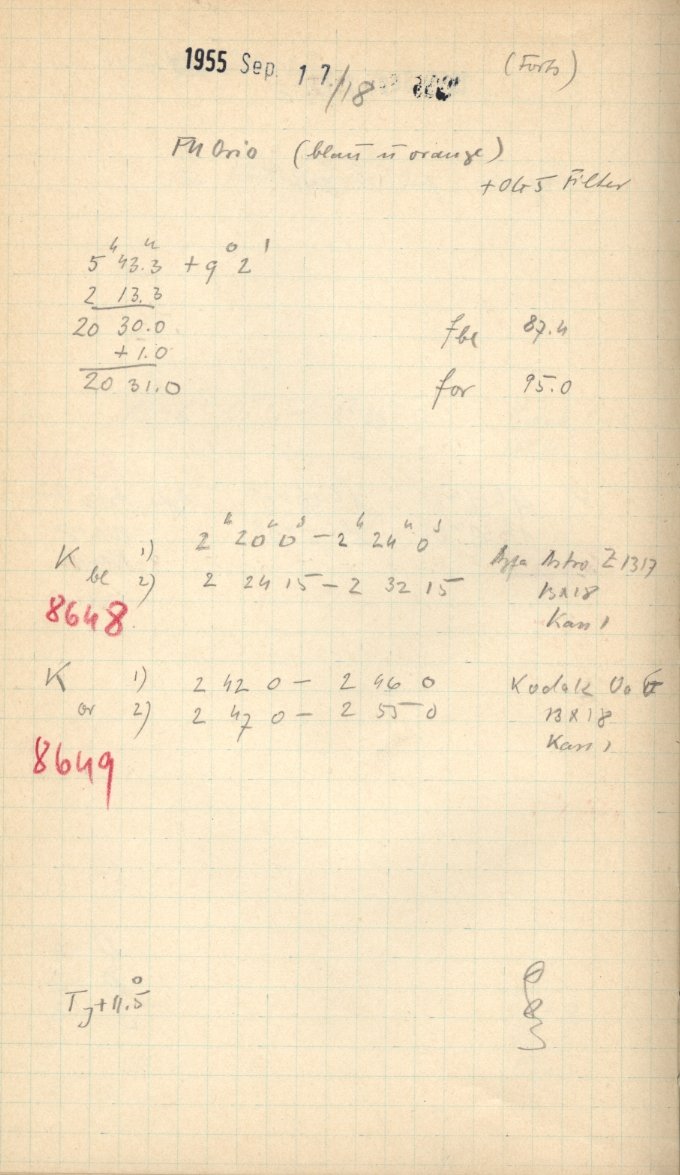 1955 Sep. 17/18 (Forts)
FU Orio (blau u orange)
+ OG5 Filter
5ʰ 43.3ᵐ + 9° 2'
2 13.3
20 30.0
+ 1.0
20 31.0
f bl 87.4
f or 95.0
K bl 1) 2ʰ 20ᵐ 0ˢ – 2ʰ 24ᵐ 0ˢ Agfa Astro Z 1317
2) 2 24 15 – 2 32 15 13x18
8648 Kass 1
K or 1) 2 42 0 – 2 46 0 Kodak OaG
2) 2 47 0 – 2 55 0 13x18
8649 Kass 1
T J + 11.5°